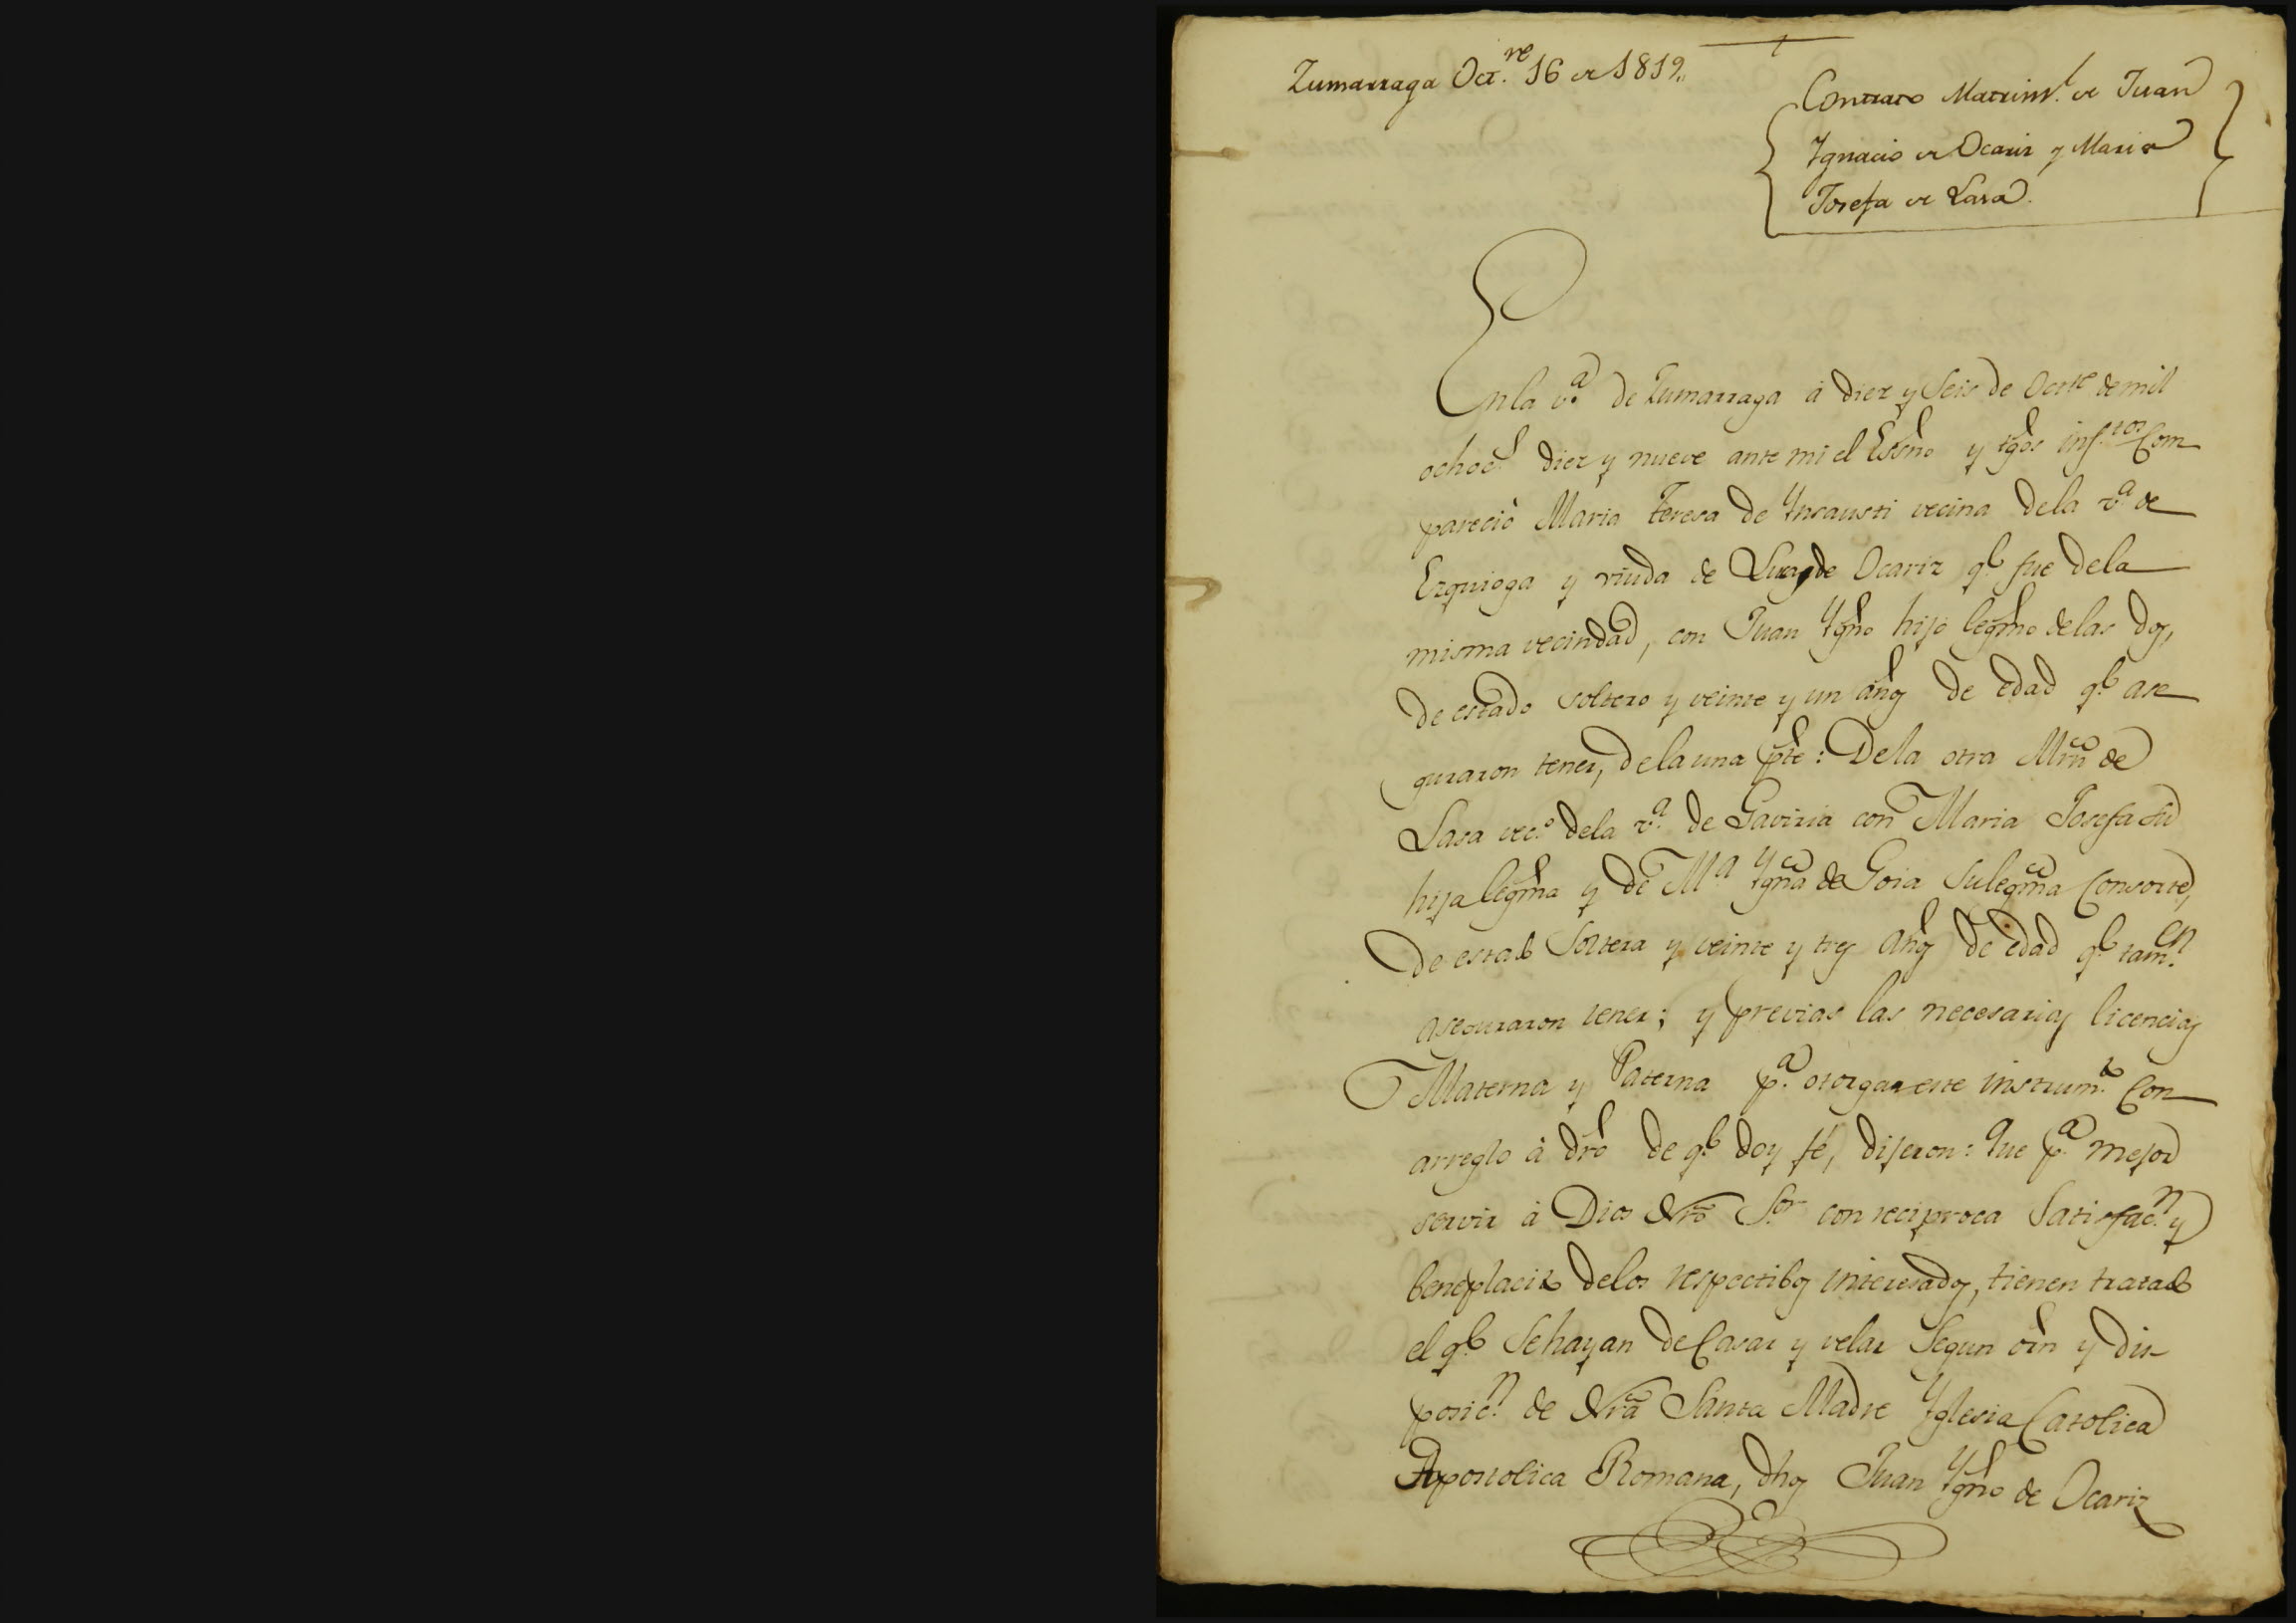 Zumarraga Oct.re 16 de 1819,,
Contrato Matrim.l de Juan
Ygnacio de Ocariz y Maria
Josefa de Lasa.
En la v.a de Zumarraga á diez y Seis de Octre de mil
ochoc.s diez y nueve ante mi el Essno y tgos inf.tos Com
pareciò Maria Teresa de Yncausti vecina dela v.a de
Ezquioga y viuda de Lucas de Ocariz q.e fue dela
misma vecindad, con Juan Ygno hijo legmo de las dos,
de estado soltero y veinte y un años de edad q.e ase
guraron tener, dela una pte: Dela otra Mrn de
Lasa vec.o dela v.a de Gaviria con Maria Josefa su
hija legma y de M.a Ygna de Goia su legma Consorte,
de estado Soltera y veinte y tres años de edad q.e tam.en
aseguraron tener; y previas las necesarias licencias
Materna y Paterna p.a otorgar este instrum.to Con
arreglo à dro de q.e doy fé, dijeron: Que p.a mejor
servir à Dios Nro S.or con reciproca Satisfac.n y
beneplacito delos respectibos interesados, tienen tratado
el q.e Se hayan de Casar y velar Segun orn y dis
posic.n de Nra Santa Madre Yglesia Catolica
Apostolica Romana, dhos Juan Ygno de Ocariz